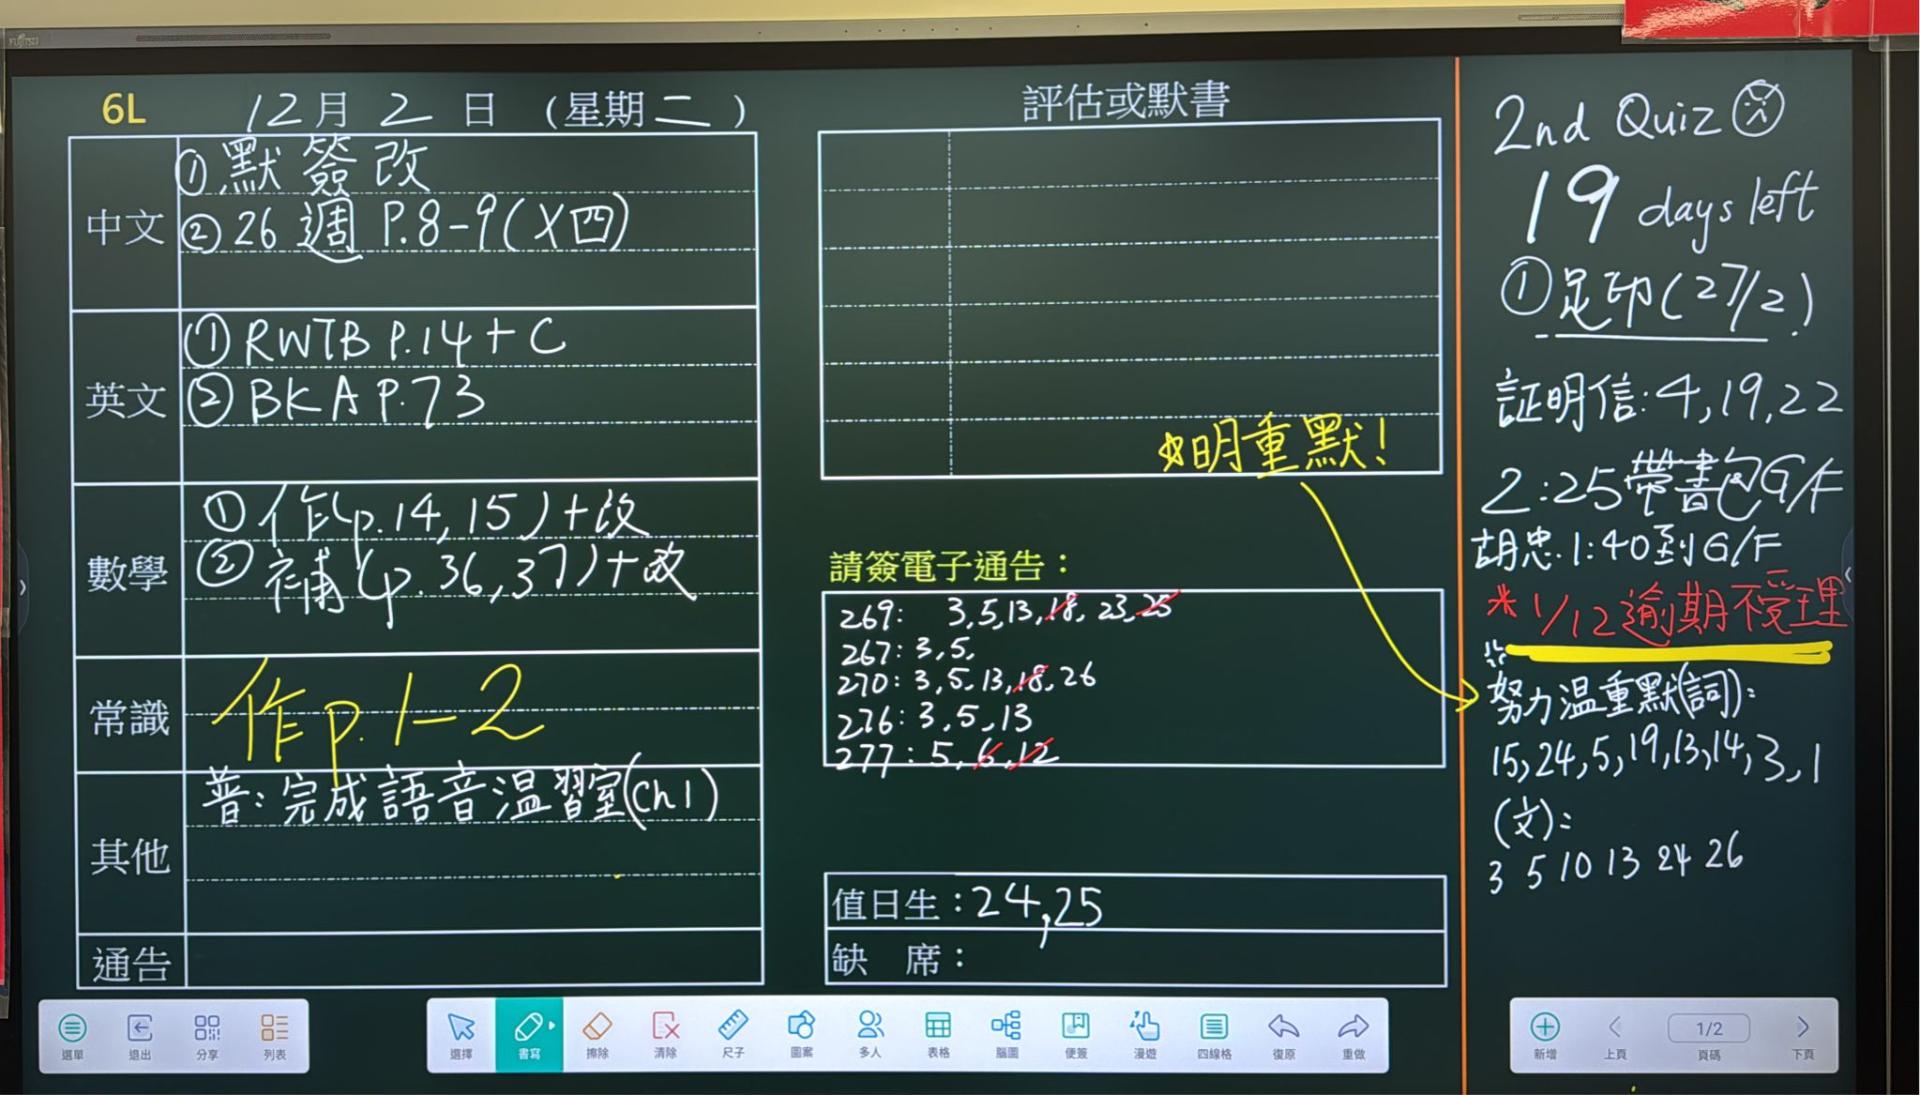 FUJITSU
6L 12月2日 (星期二)
中文
①默簽改
②26週 P.8-9(X四)
英文
①RWTB P.14+C
②BKA P.73
數學
①作(p.14,15)+改
②補(p.36,37)+改
常識
作p.1-2
其他
普:完成語音温習室(ch1)
通告
評估或默書
*明重默!
請簽電子通告：
269: 3,5,13,18,23,25
267: 3,5,
270: 3,5,13,18,26
276: 3,5,13
277: 5,6,12
值日生：24,25
缺 席：
2nd Quiz
19 days left
①足印(27/2)
証明信:4,19,22
2:25帶書包G/F
胡忠.1:40到G/F
*1/12逾期不受理
努力温重默(詞):
15,24,5,19,13,14,3,1
(文):
3 5 10 13 24 26
選單 退出 分享 列表
選擇 書寫 擦除 清除 尺子 圖案 多人 表格 腦圖 便簽 漫遊 四線格 復原 重做
新增 上頁 1/2 頁碼 下頁